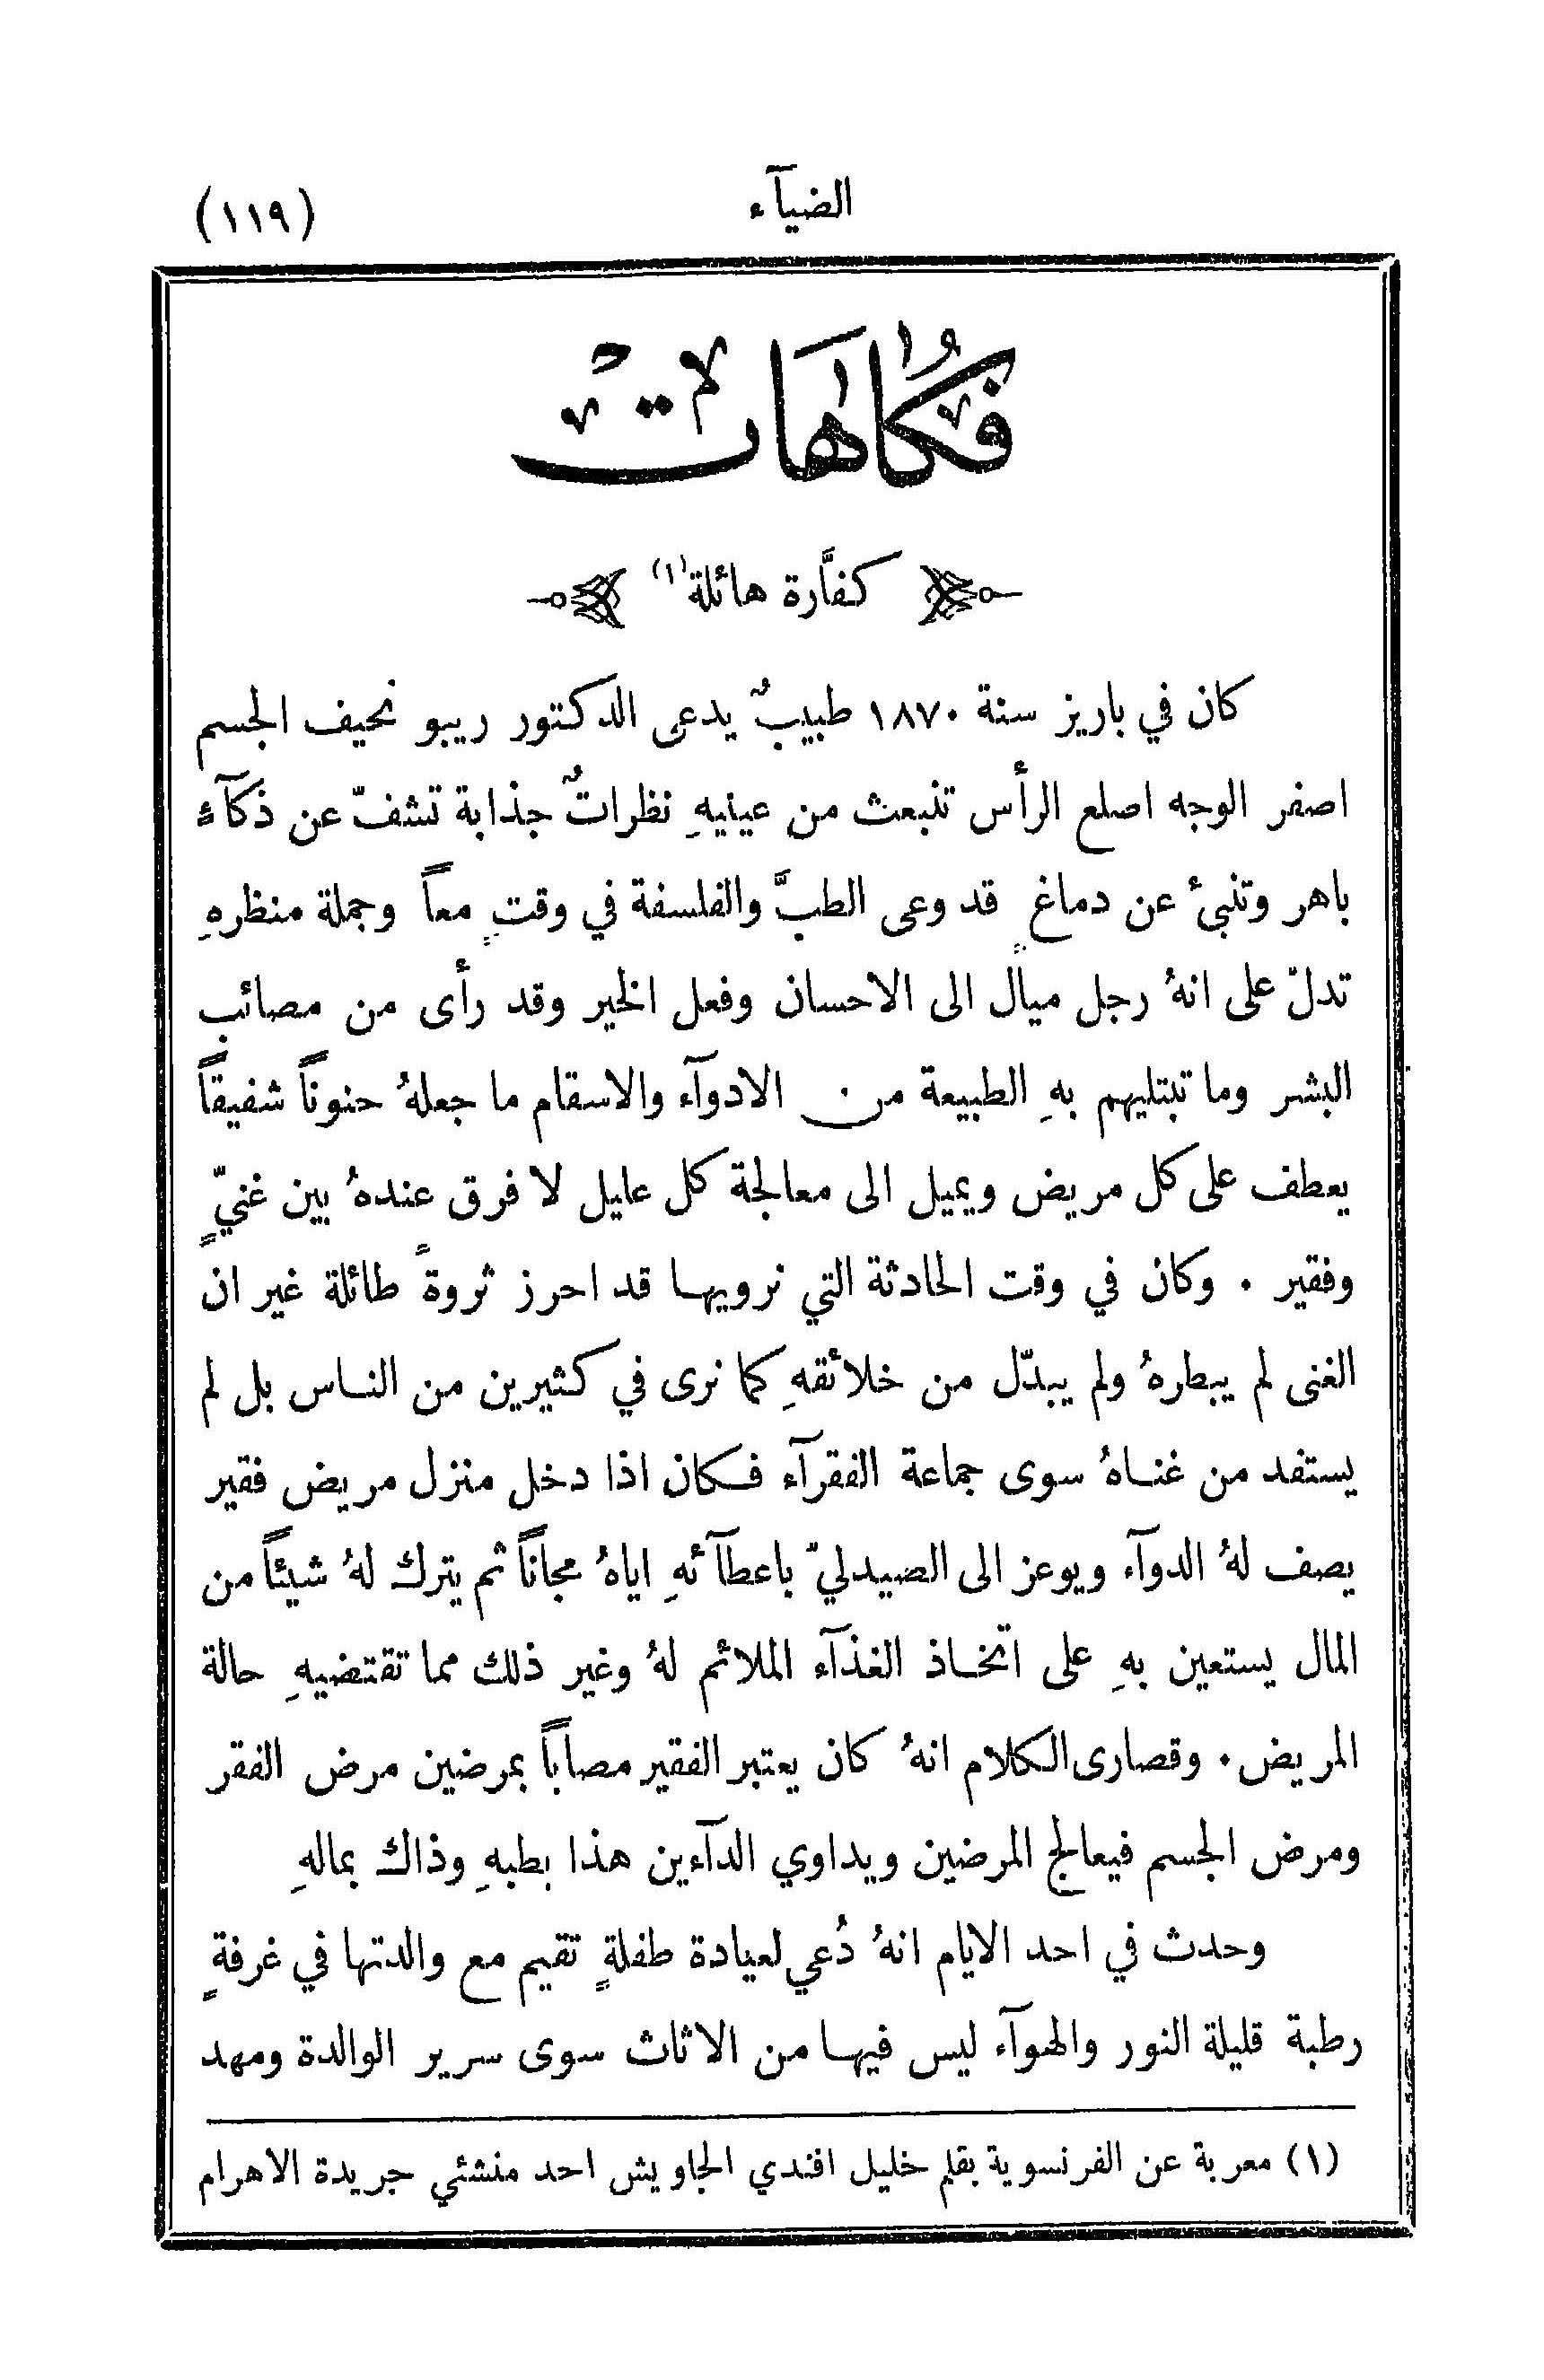 الضيآء
(١١٩)
فُكَاهَات
كفَّارة هائلة (١)
كان في باريز سنة ١٨٧٠ طبيبٌ يدعى الدكتور ريبو نحيف الجسم
اصفر الوجه اصلع الرأس تنبعث من عينيهِ نظراتٌ جذابة تشفّ عن ذكآءٍ
باهر وتنبئ عن دماغٍ قد وعى الطبَّ والفلسفة في وقتٍ معاً وجملة منظرهِ
تدلّ على انهُ رجل ميال الى الاحسان وفعل الخير وقد رأى من مصائب
البشر وما تبتليهم بهِ الطبيعة من الادوآء والاسقام ما جعلهُ حنوناً شفيقاً
يعطف على كل مريض ويميل الى معالجة كل عليل لا فرق عندهُ بين غنيٍّ
وفقير . وكان في وقت الحادثة التي نرويها قد احرز ثروةً طائلة غير ان
الغنى لم يبطرهُ ولم يبدّل من خلائقهِ كما نرى في كثيرين من الناس بل لم
يستفد من غناهُ سوى جماعة الفقرآء فكان اذا دخل منزل مريض فقير
يصف لهُ الدوآء ويوعز الى الصيدليّ باعطآئهِ اياهُ مجاناً ثم يترك لهُ شيئاً من
المال يستعين بهِ على اتخاذ الغذآء الملائم لهُ وغير ذلك مما تقتضيهِ حالة
المريض . وقصارى الكلام انهُ كان يعتبر الفقير مصاباً بمرضين مرض الفقر
ومرض الجسم فيعالج المرضين ويداوي الدآءين هذا بطبهِ وذاك بمالهِ
وحدث في احد الايام انهُ دُعي لعيادة طفلةٍ تقيم مع والدتها في غرفةٍ
رطبة قليلة النور والهوآء ليس فيها من الاثاث سوى سرير الوالدة ومهد
(١) معربة عن الفرنسوية بقلم خليل افندي الجاويش احد منشئي جريدة الاهرام